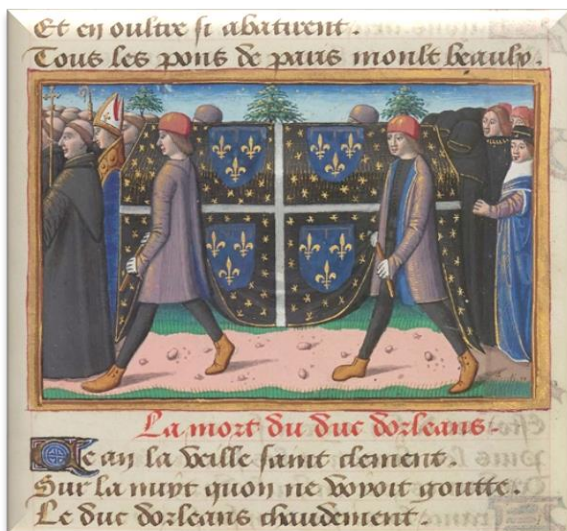 Et en oultre si abatirent.
Tous les pons de paris moult beaulx.
La mort du duc dorleans.
Ce an la veille saint clement.
Sur la nuyt quon ne veoyoit goutte.
Le duc dorleans chaudement